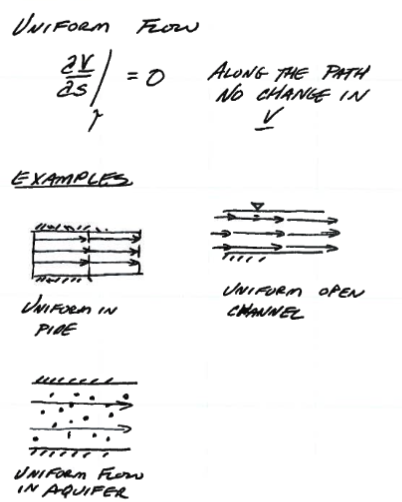 UNIFORM FLOW
∂V/∂s | = 0
ALONG THE PATH
NO CHANGE IN
V
EXAMPLES
UNIFORM IN
PIPE
UNIFORM OPEN
CHANNEL
UNIFORM FLOW
IN AQUIFER